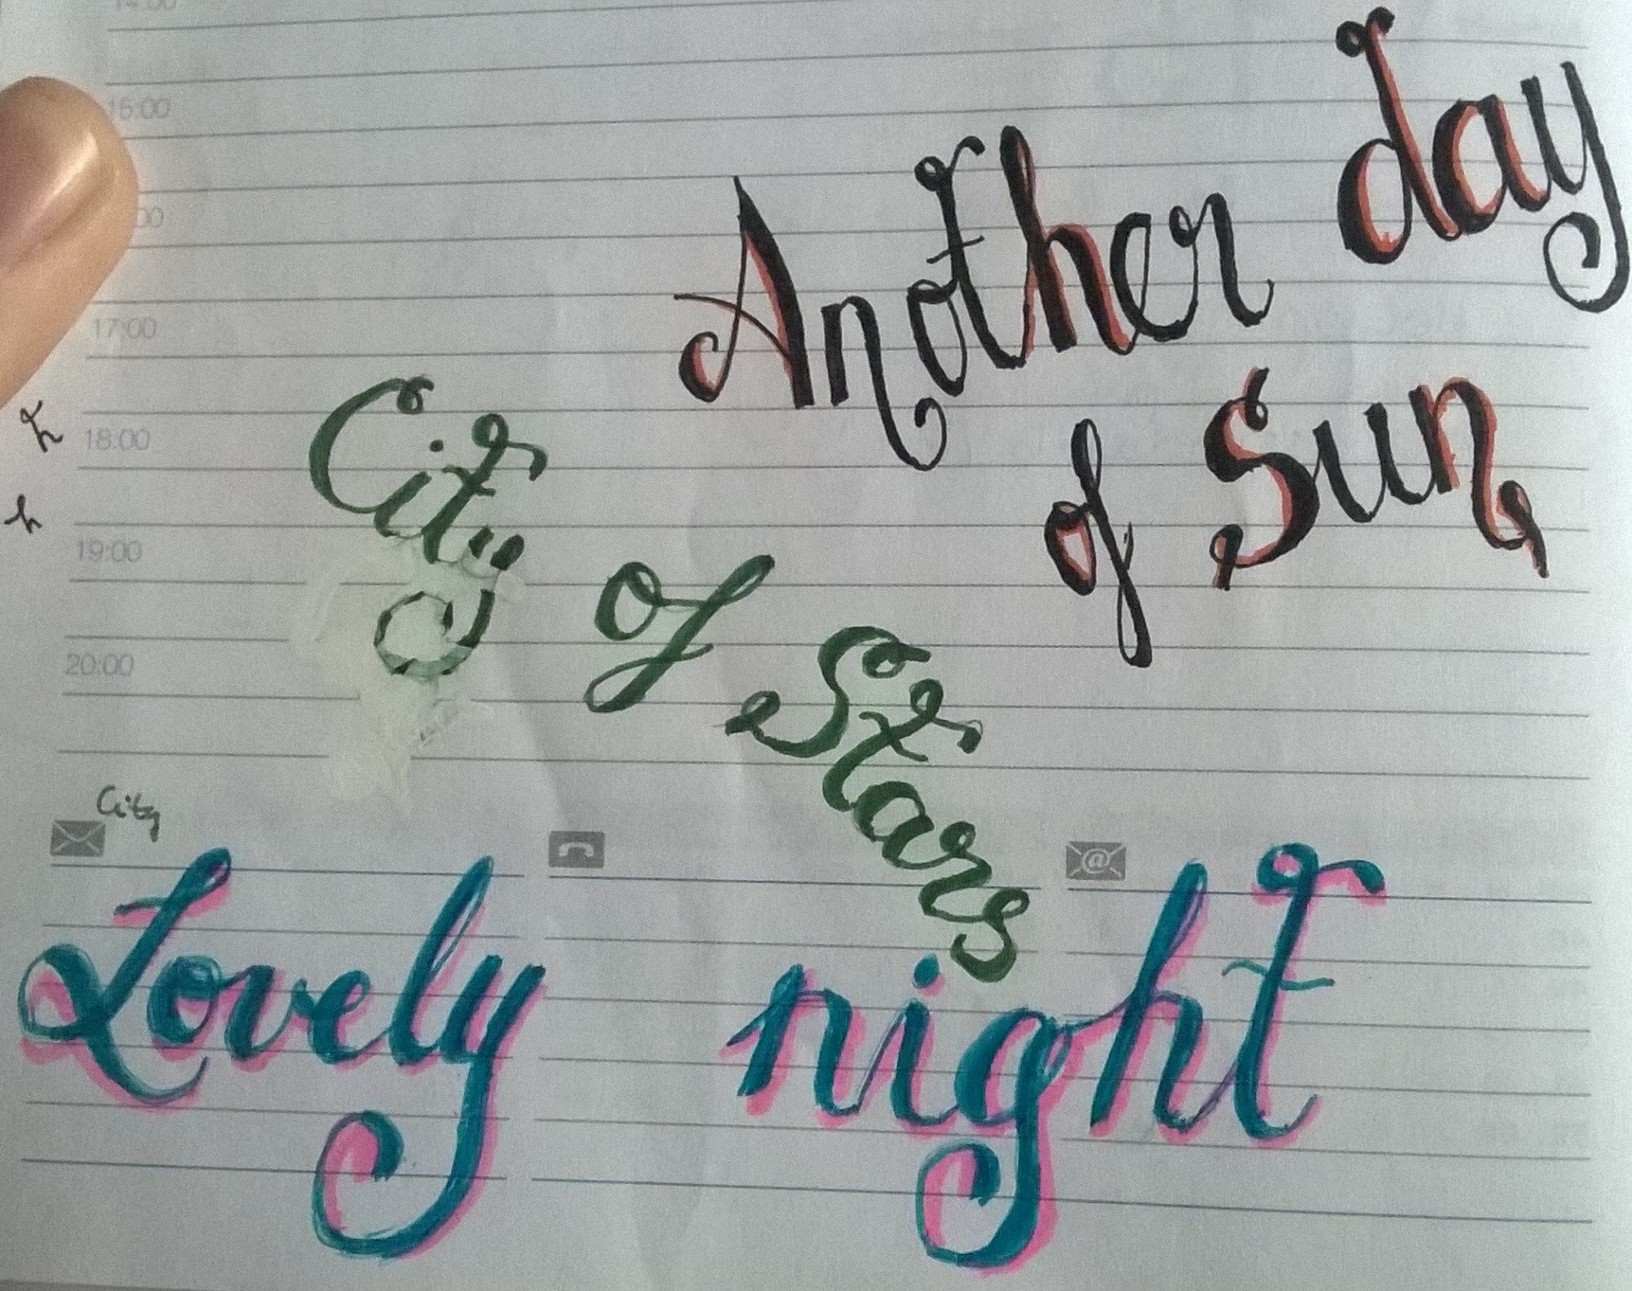 14:00
15:00
17:00
18:00
19:00
20:00
h
h
Another day
of Sun
City
of
Stars
City
@
Lovely night